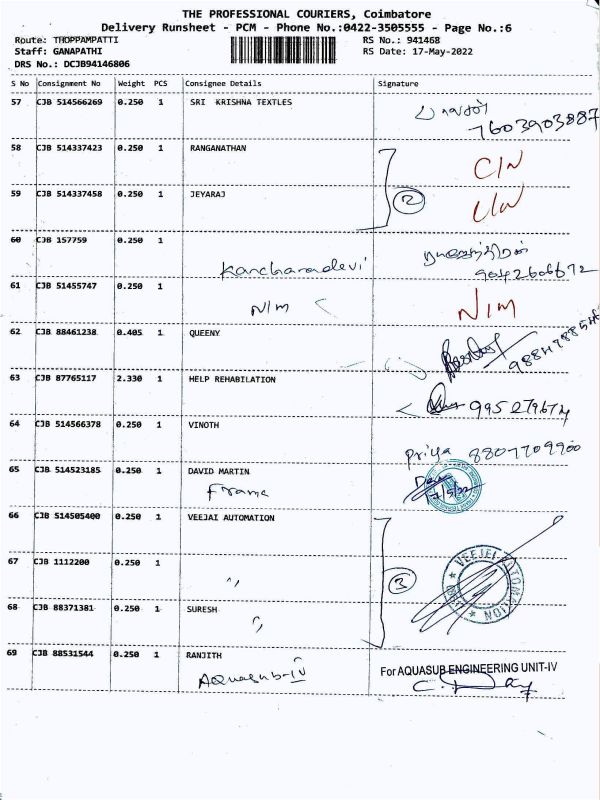 THE PROFESSIONAL COURIERS, Coimbatore
Delivery Runsheet - PCM - Phone No.:0422-3505555 - Page No.:6
Route: THOPPAMPATTI RS No.: 941468
Staff: GANAPATHI RS Date: 17-May-2022
DRS No.: DCJB94146806
S No Consignment No Weight PCS Consignee Details Signature
57 CJB 514566269 0.250 1 SRI KRISHNA TEXTLES
7603903887
58 CJB 514337423 0.250 1 RANGANATHAN
59 CJB 514337458 0.250 1 JEYARAJ
2
60 CJB 157759 0.250 1
Kancharadevi 9042606672
61 CJB 51455747 0.250 1
N/M N/M
62 CJB 88461238 0.405 1 QUEENY
63 CJB 87765117 2.330 1 HELP REHABILATION
64 CJB 514566378 0.250 1 VINOTH
Priya 8807709900
65 CJB 514523185 0.250 1 DAVID MARTIN
Frama 17/5/22
66 CJB 514505400 0.250 1 VEEJAI AUTOMATION
67 CJB 1112200 0.250 1
〃 3 VEEJEI AUTOMATION
68 CJB 88371381 0.250 1 SURESH
〃
69 CJB 88531544 0.250 1 RANJITH
Aquasub-IV For AQUASUB ENGINEERING UNIT-IV